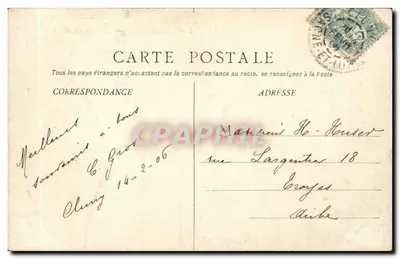 CARTE POSTALE
Tous les pays étrangers n'acceptent pas la correspondance au recto, se renseigner à la Poste
CORRESPONDANCE
ADRESSE
Meilleurs
souvenirs à tous
C. Gros
Cluny 14-2-06
Monsieur H. Huser
rue Largentier 18
Troyes
Aube
CPAPHIL